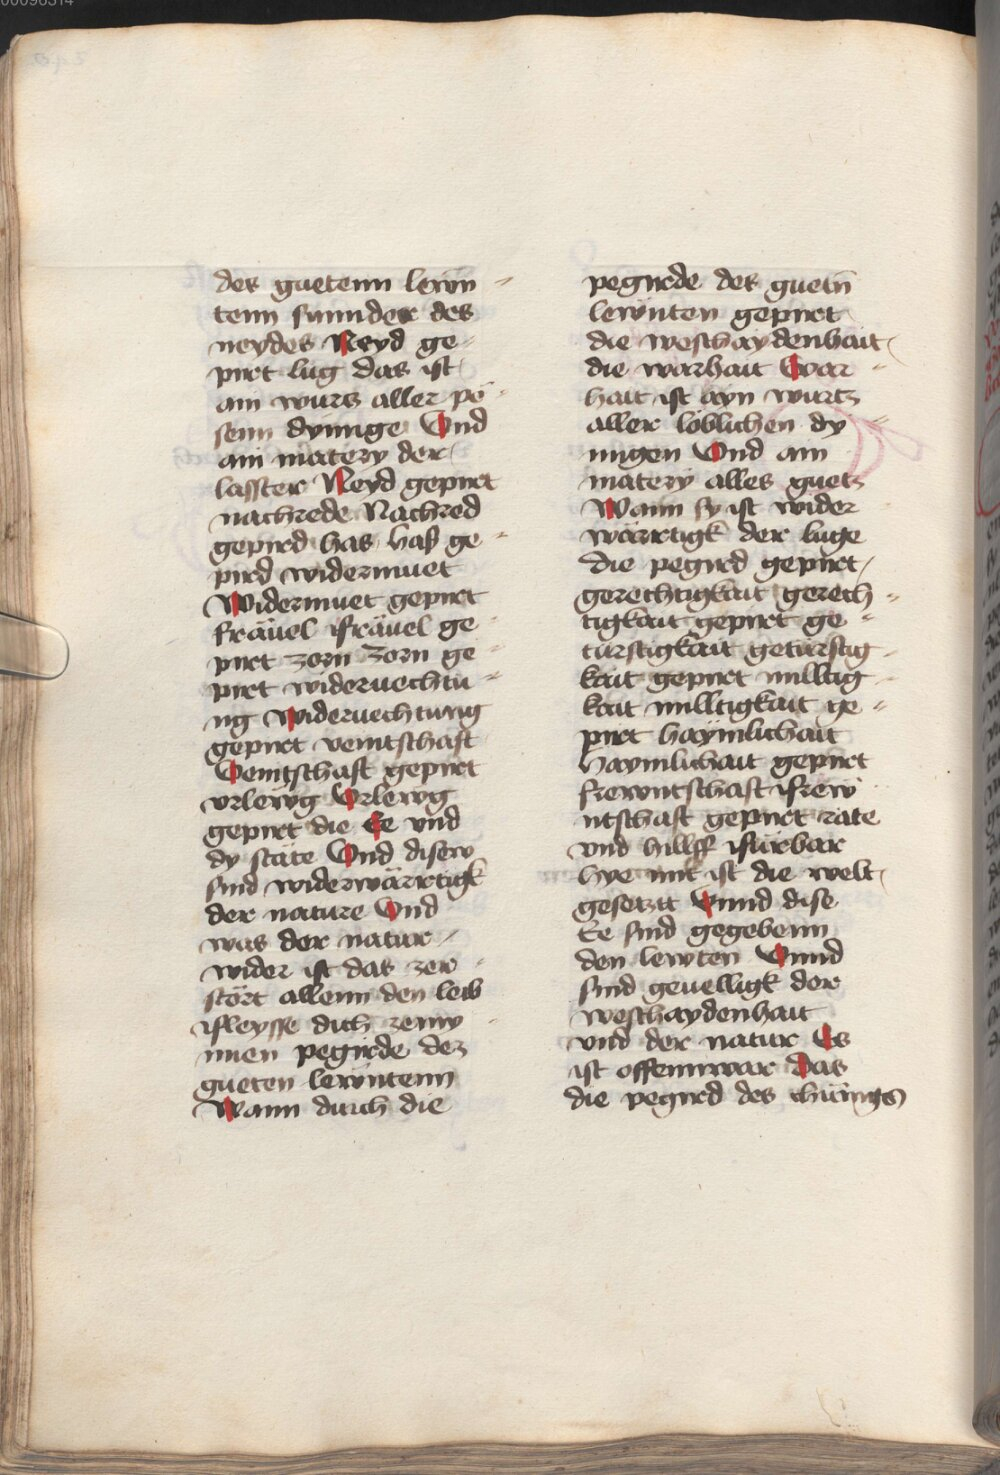 des guetenn lewn-
tenn sunnder des
neydes Neyd ge-
pirt lug das ist
ain wurtz aller pö-
senn dynnge Vnd
ain matery der
lasster Neyd gepirt
nachrede Nachred
gepird has haß ge-
pird widermuet
Widermuet gepirt
fräuel ffräuel ge-
pirt zorn Zorn ge
pirt wideruechtu-
ng Wideruechtung
gepirt veintschafft
Veintschafft gepirt
vrlewg Vrlewg
gepirt die Ee vnd
dy stäte Vnd disew
sind widerwärrtigk
der nature Vnd
was der natur
wider ist das zer-
stört allenn den leib
ffleysse dich zemy-
nnen pegirde dez
gueten lewntenn
Wann durch die
pegirde des guetn̄
lewnten gepirt
die weschaydenhait
die warhait War-
hait ist ayn wurtz
aller löblichen dy-
nngen Vnd ain
matery alles guetz
Wann sy ist wider
wärrtigk der luge
die pegird gepirt
gerechtigkait gerech-
tigkait gepirt ge-
türstigkait getürstig-
kait gepirt milltig-
kait milltigkait ge-
pirt haymlichait
haymlichait gepirt
frewntschafft ffrew
ntschafft gepirt rate
vnd hillff ffürbar
hye mit ist die welt
gesetztt Vnnd dise
Ee sind gegebenn
den lewten Vnnd
sind geuelligk der
weschaydenhait
vnd der natur Es
ist offennwar Das
die pegird des chünigs